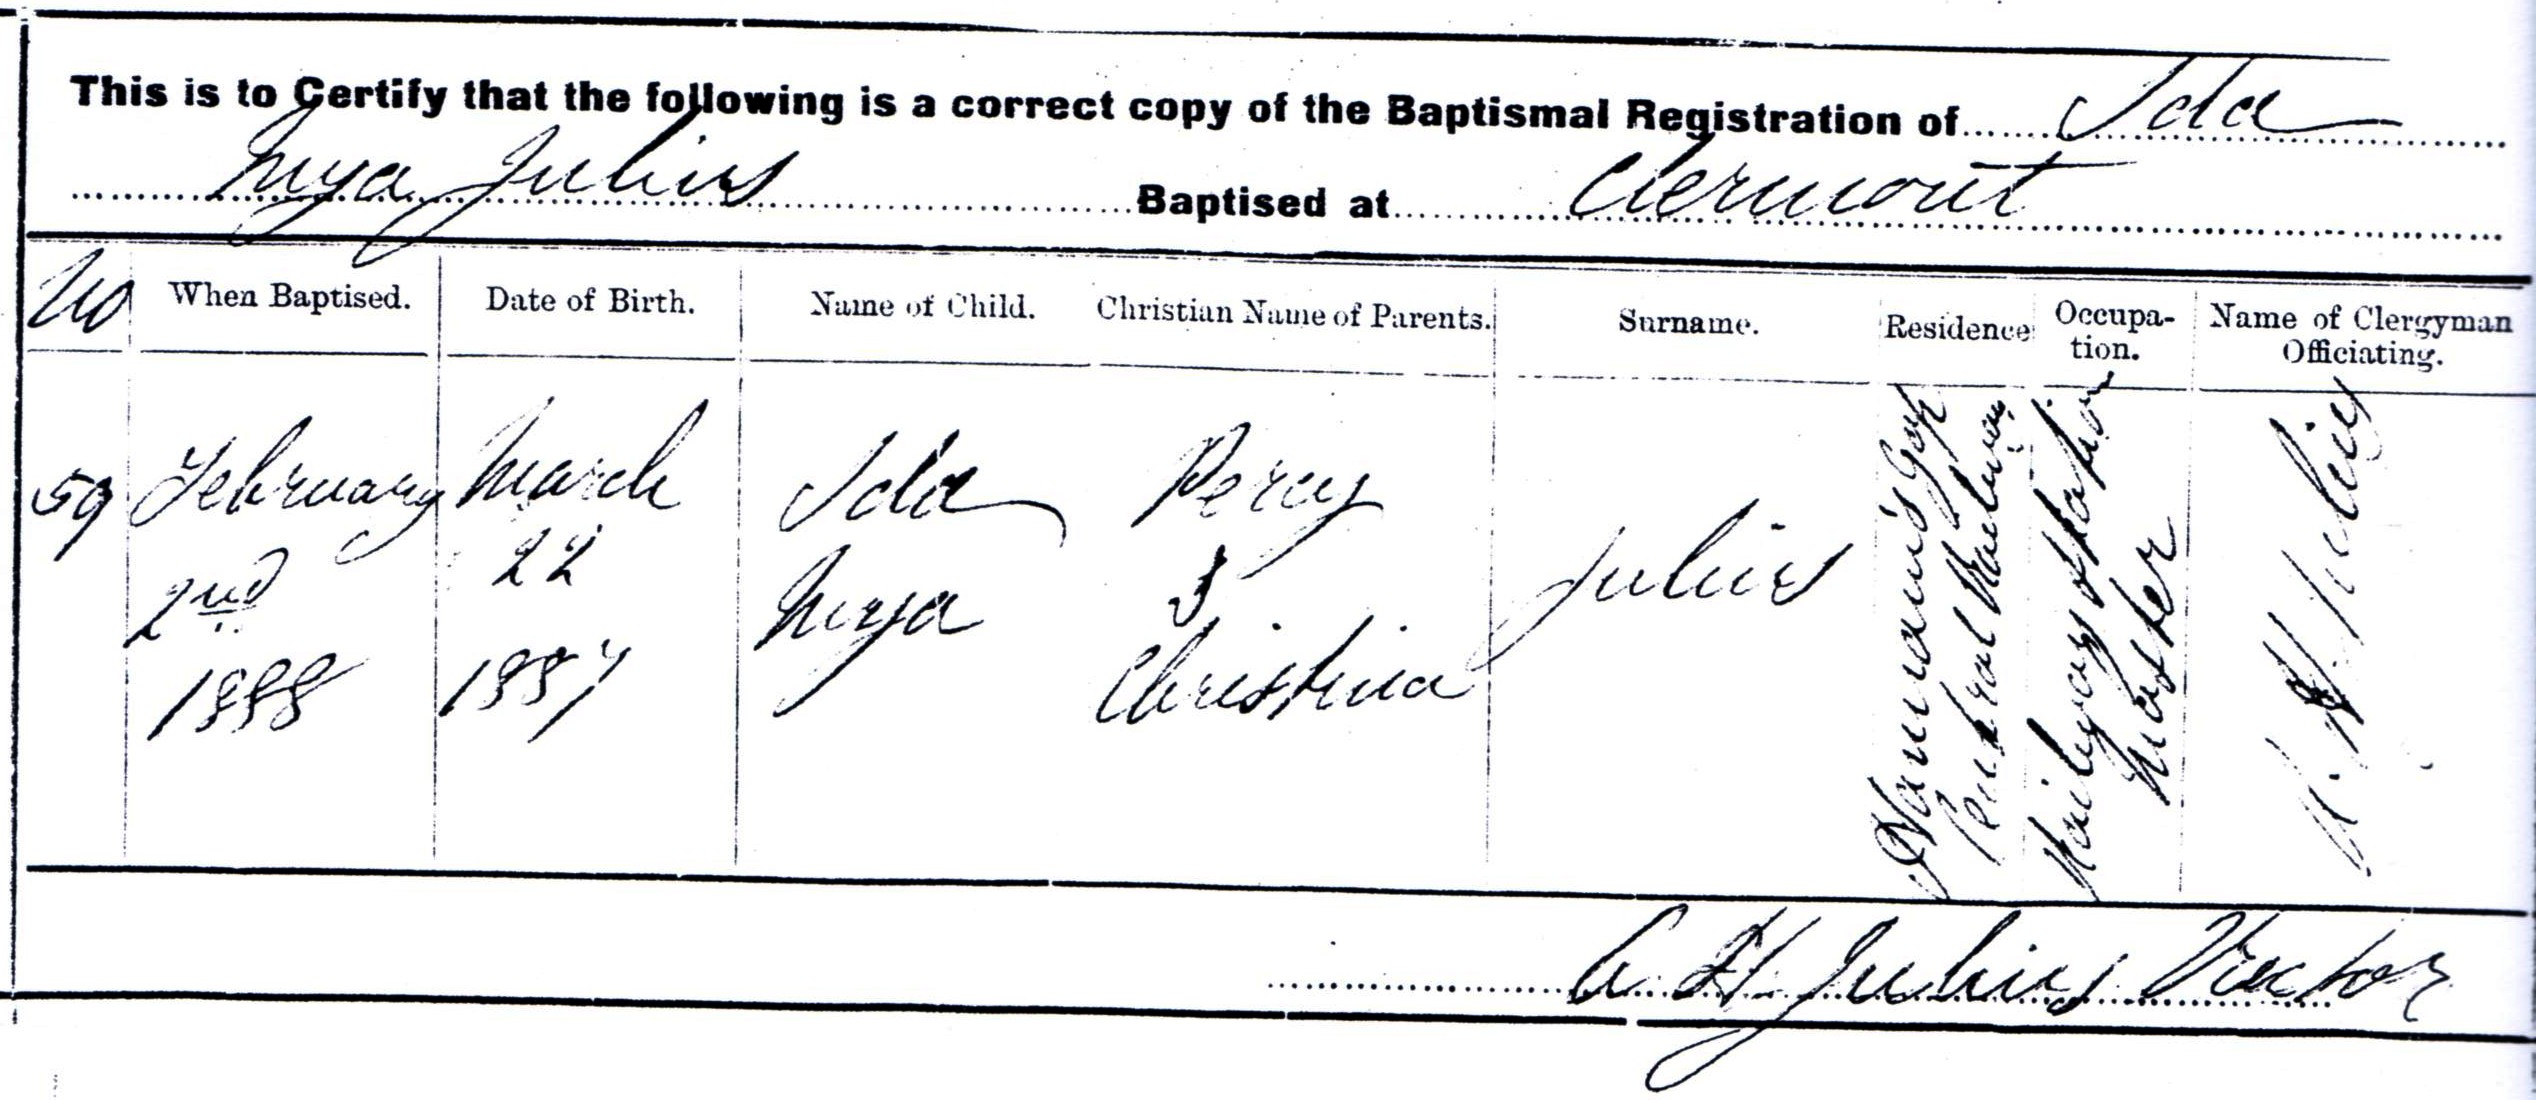 This is to Certify that the following is a correct copy of the Baptismal Registration of Ida
Julius Baptised at Clermont
No When Baptised. Date of Birth. Name of Child. Christian Name of Parents. Surname. Residence Occupa-tion. Name of Clergyman Officiating.
59 February March Ida Percy
2nd 22 &
1888 1887 Christina
Julius
Central Railway
Railway Station
Master
A. H. Julius
A H Julius Rector